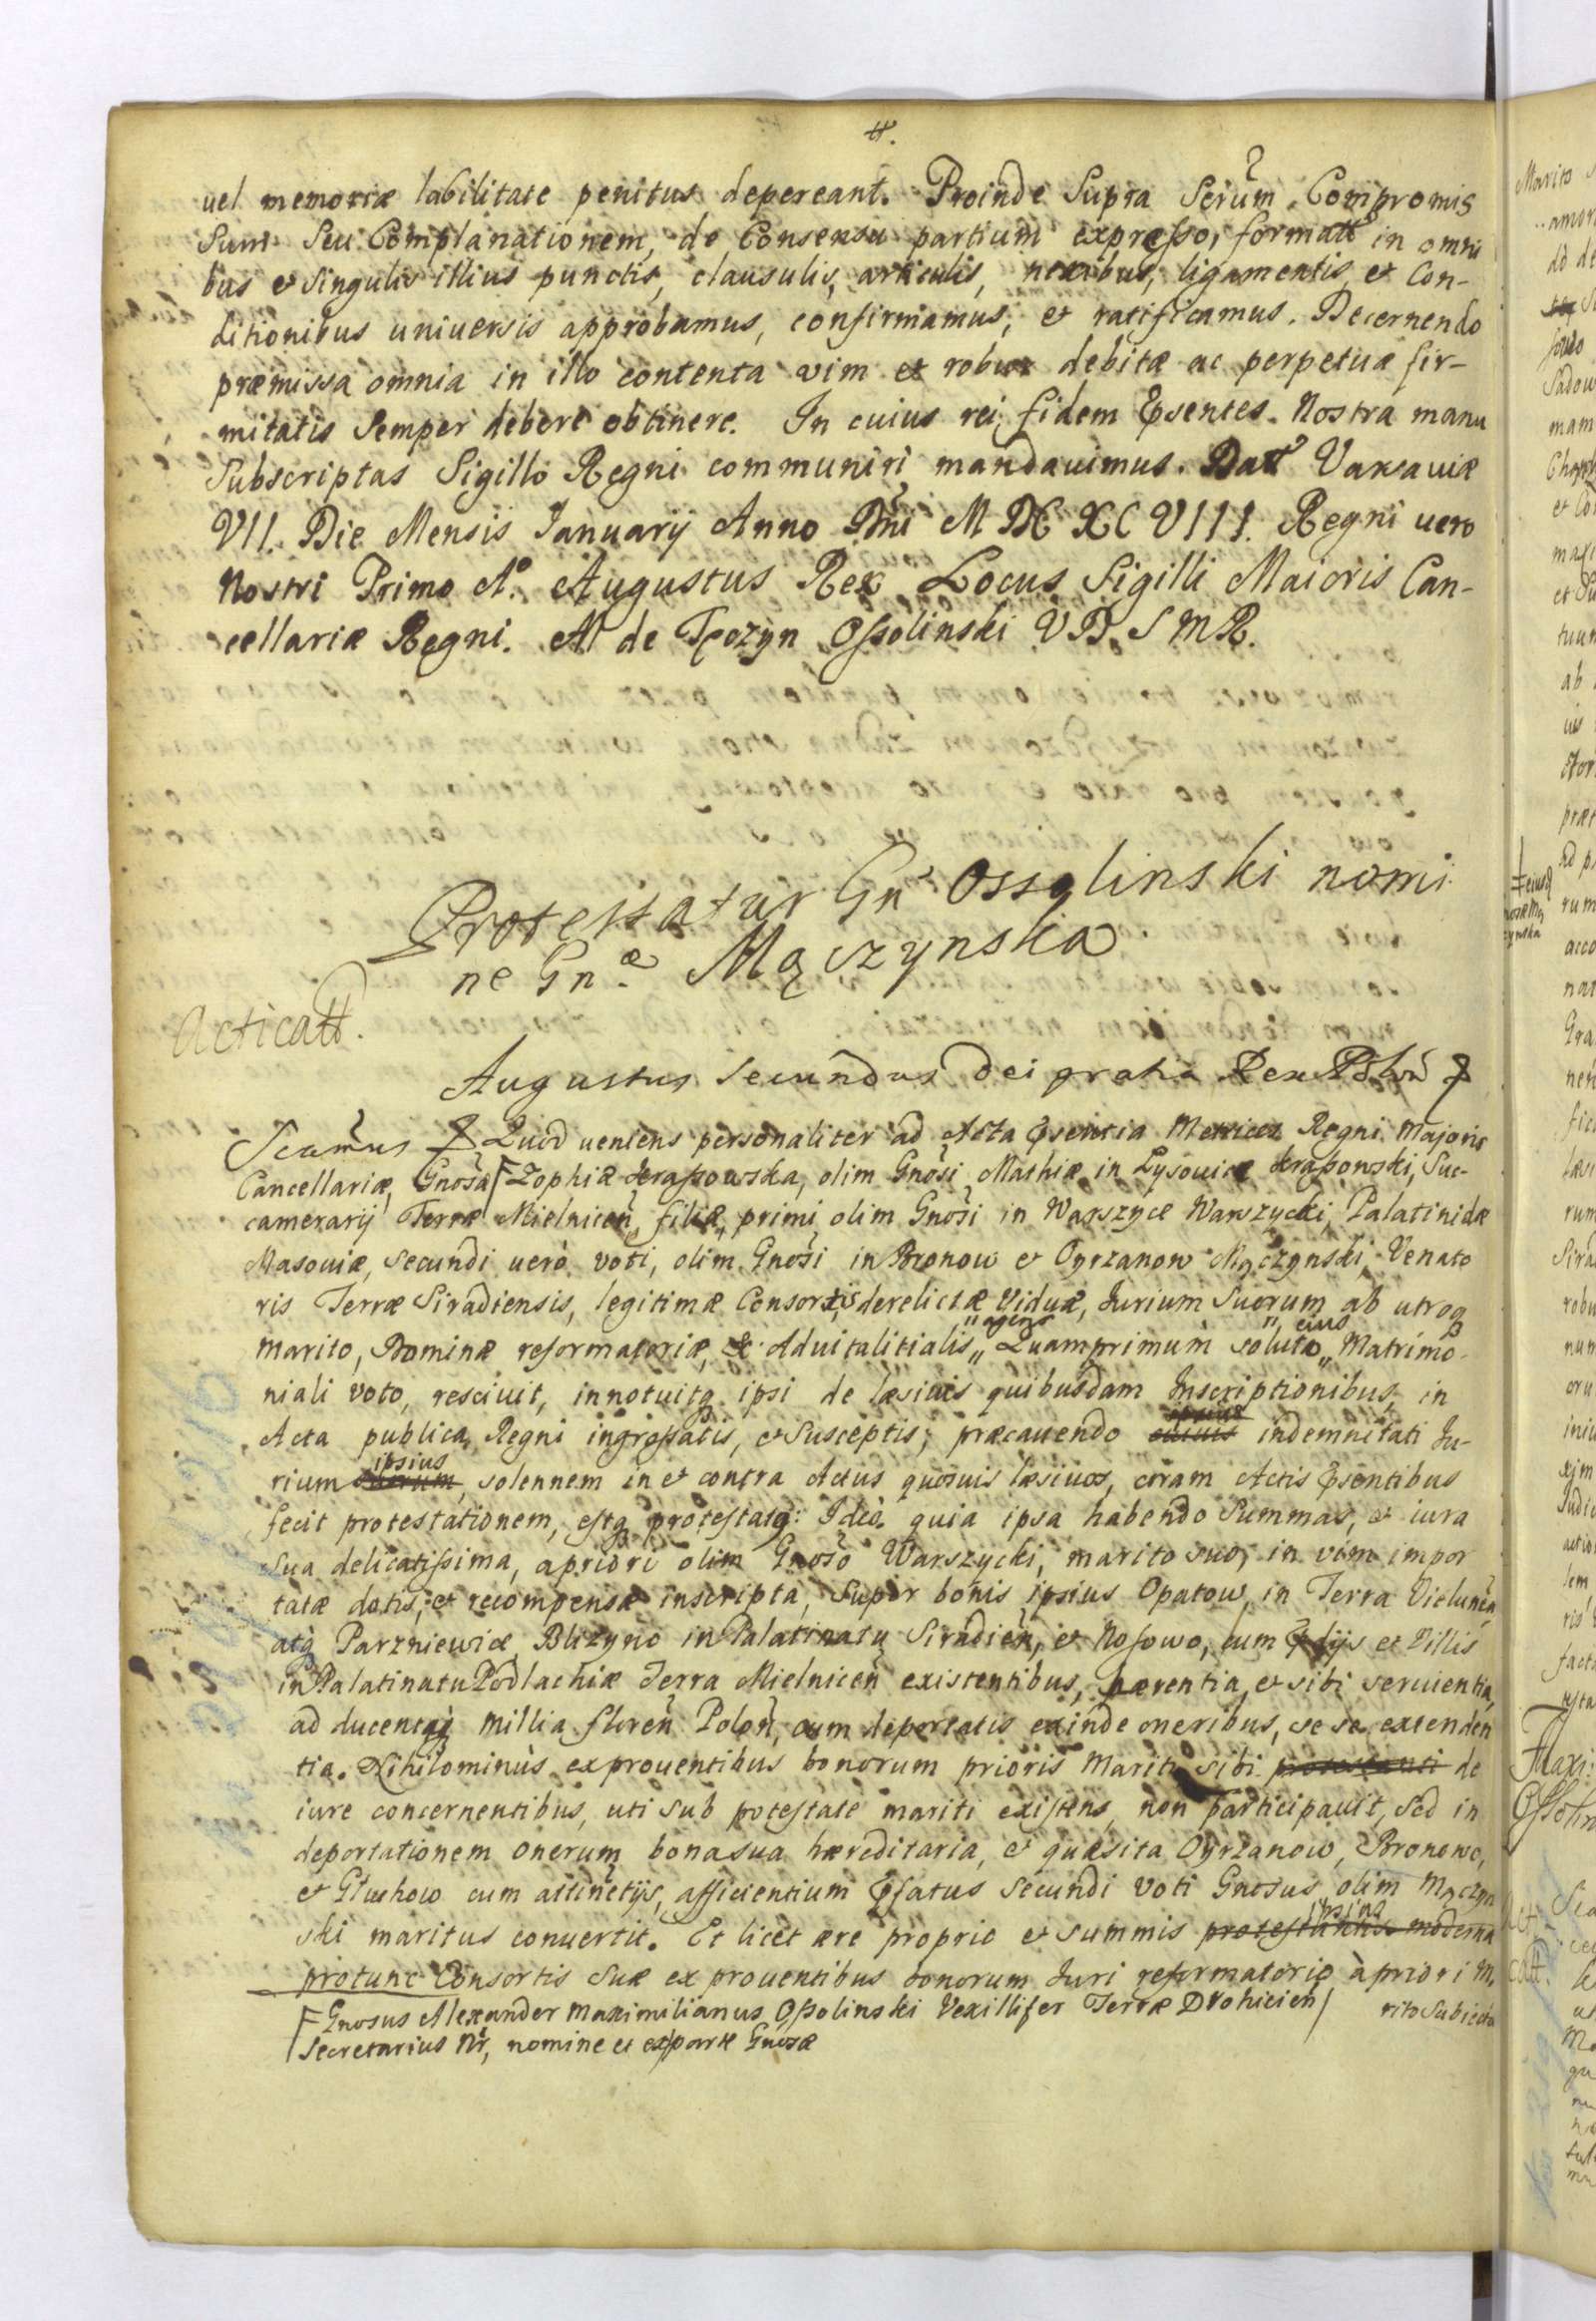 tt.
uel memoriæ labilitate penitus depereant. Proinde Supra Scrûm Compromis
Sum Seu Complanationem, de Consensu partium expresso, formatt in omni
bus et Singulis illius punctis, clausulis, articulis, nexibus, ligamentis, et Con-
ditionibus uniuersis approbamus, confirmamus, et ratificamus. Decernendo
præmissa omnia in illo contenta vim et robur debitæ ac perpetuæ fir-
mitatis Semper debere obtinere. In cuius rei fidem Pñsentes. Nostra manu
Subscriptas Sigillo Regni communiri mandauimus. Datt Varsauiæ
VII. Die Mensis Januarij Anno Dñi M DC XC VIII. Regni uero
Nostri Primo Aº. Augustus Rex Locus Sigilli Maioris Can-
cellariæ Regni. M de Tęczyn Ossolinski VD. S M R.
Protestatur Gn˜ Ossolinski nomi
ne Gn.æ Mączynska
Acticatt.
Augustus Secundus Dei gratia Rex Polon
Quod ueniens personaliter ad Acta Pñsentia Metrices Regni Majoris
Cancellariæ, Gñosa Zophiæ Krassowska, olim Gñosi Mathiæ in Lysowice Krassowski, Suc-
camerarij Terræ Mielniceñ, filiæ, primi olim Gñosi in Warszyce Warszycki, Palatinidæ
Masouiæ, Secundi uerò voti, olim Gñosi in Bronow et Oyrzanow Mączynski, Venato
ris Terræ Siradiensis, legitimæ Consortis derelictæ Viduæ, Jurium Suorum ab utroq
"agens ", eius
marito, Dominæ reformatoriæ, & Aduitalitialis" Quamprimum soluto" Matrimo-
niali voto, resciuit, innotuitq ipsi de læsiuis quibusdam Inscriptionibus, in
Acta publica Regni ingrossatis, et Susceptis; præcauendo indemnitati Ju-
ipsius
rium suorum, solennem in et contra Actus quosuis læsiuos, coram Actis Pñsentibus
fecit protestationem, estq protestatq: Ideò quia ipsa habendo Summas, et iura
Sua delicatissima, apriori olim Gñoso Warszycki, marito suo, in vim impor
tatæ dotis, et recompensæ inscripta, Super bonis ipsius Opatow, in Terra Vieluneñ
atq Parzniewice Blizyno in Palatinatu Siradieñ, et Nosowo, cum Pdijs et Villis
in Palatinatu Podlachiæ Terra Mielniceñ existentibus, hærentia, et sibi seruientia,
ad ducentaq millia floreñ Poloñ, cum deportatis exinde oneribus, se se extenden
tia. Nihilominùs ex prouentibus bonorum prioris Mariti sibi protestanti de
iure concernentibus, uti Sub potestate mariti existens, non participauit, Sed in
deportationem onerum bona sua hæreditaria, et quæsita Oyrzanow, Bronowo,
et Gluchow cum attinetijs, afficientium Pfatus Secundi Voti Gnosus olim Mączyn
ipsius
ski maritus conuertit. Et licet ære proprio et summis protestantis moderna
protunc Consortis Suæ ex prouentibus bonorum Juri reformatorio à priori Ma
rito Subiecta
Gnosus Alexander Maximilianus Ossolinski Vexillifer Terræ Drohicieñ
Secretarius Nr, nomine et ex parte Gnosæ